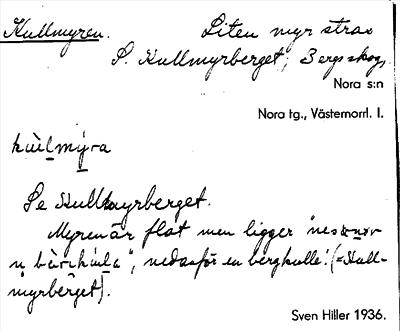 Kullmyren.
Liten myr strax
S. Kullmyrberget, Bergskog,
Nora s:n
Nora tg., Västernorrl. l.
kùlmỳra
Se Kullmyrberget.
Myren är flat men ligger
", nedanför en bergkulle! (= Kull-
myrberget).
Sven Hiller 1936.